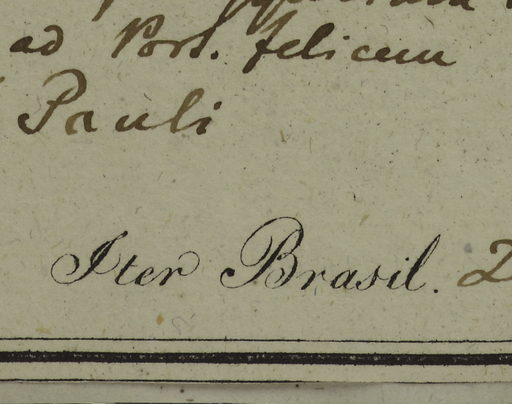 ad Port. felicem
Pauli
Iter Brasil. 2